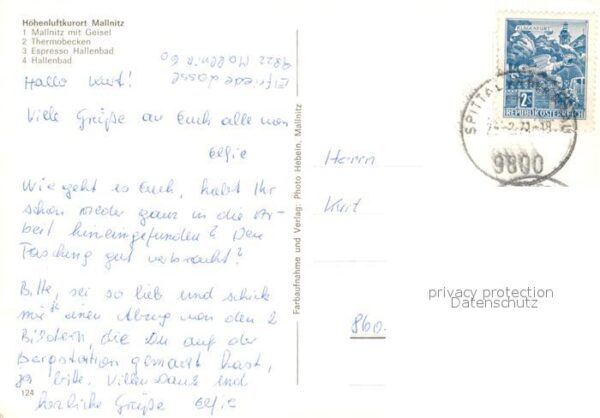 Höhenluftkurort Mallnitz
1 Mallnitz mit Geisel
2 Thermobecken
3 Espresso Hallenbad
4 Hallenbad
Elfriede
9822 Mallnitz 60
Hallo Kurt!
Viele Grüße an Euch alle von
Elfie
Wie geht es Euch, habt Ihr
schon wieder ganz in die Ar-
beit hineingefunden? Den
Fasching gut verbracht?
Bitte, sei so lieb und schick
mir einen Abzug von den 2
Bildern, die Du auf der
Bergstation gemacht hast,
ja bitte. Vielen Dank und
herzliche Grüße Elfie
124
Farbaufnahme und Verlag: Photo Hebein, Mallnitz
KLAGENFURT
2S
REPUBLIK ÖSTERREICH
SPITTAL
9800
Herrn
Kurt
860
privacy protection
Datenschutz